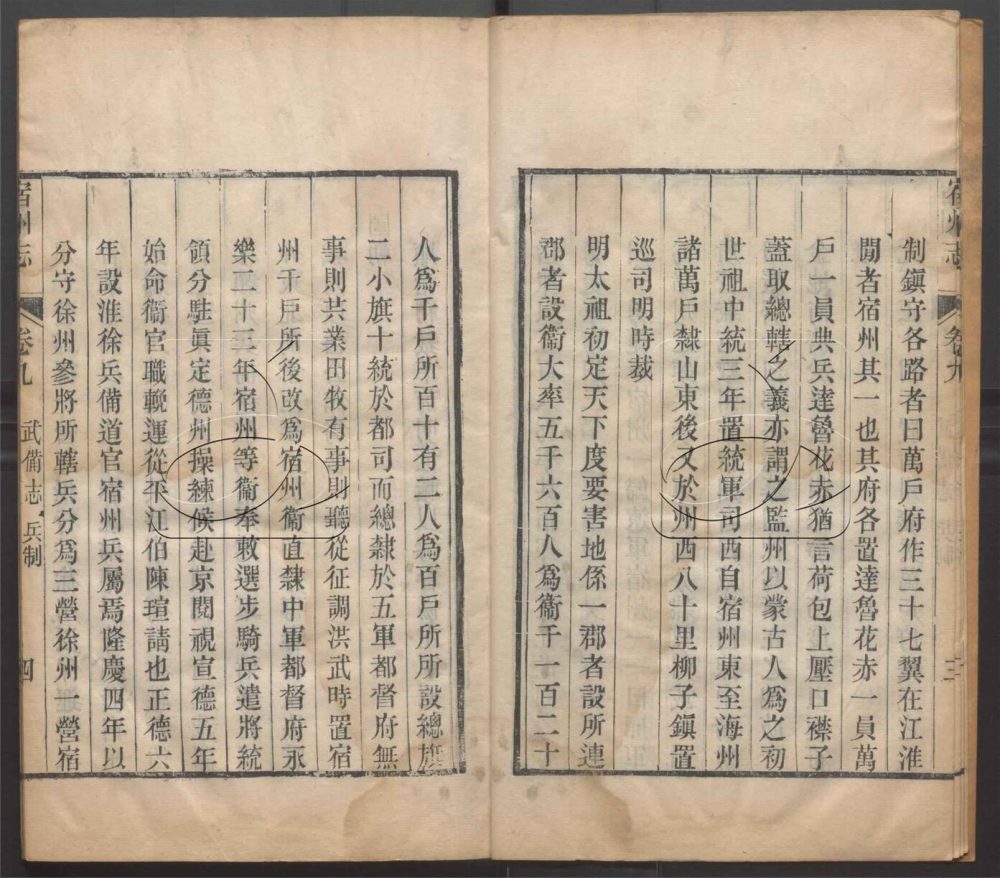 宿州志 卷九 三
制鎮守各路者曰萬戶府作三十七翼在江淮
間者宿州其一也其府各置達魯花赤一員萬
戶一員典兵達魯花赤猶言荷包上壓口襟子
蓋取總轄之義亦謂之監州以蒙古人爲之初
世祖中統三年置統軍司西自宿州東至海州
諸萬戶隸山東後又於州西八十里柳子鎮置
巡司明時裁
明太祖初定天下度要害地係一郡者設所連
郡者設衞大率五千六百人爲衞千一百二十
人爲千戶所百十有二人爲百戶所所設總旗
二小旗十統於都司而總隸於五軍都督府無
事則共業田牧有事則聽從征調洪武時置宿
州千戶所後改爲宿州衞直隸中軍都督府永
樂二十三年宿州等衞奉敕選步騎兵遣將統
領分駐眞定德州操練候赴京閱視宣德五年
始命衞官職輓運從平江伯陳瑄請也正德六
年設淮徐兵備道官宿州兵屬焉隆慶四年以
分守徐州參將所轄兵分爲三營徐州一營宿
宿州志 卷九 武備志 兵制 四